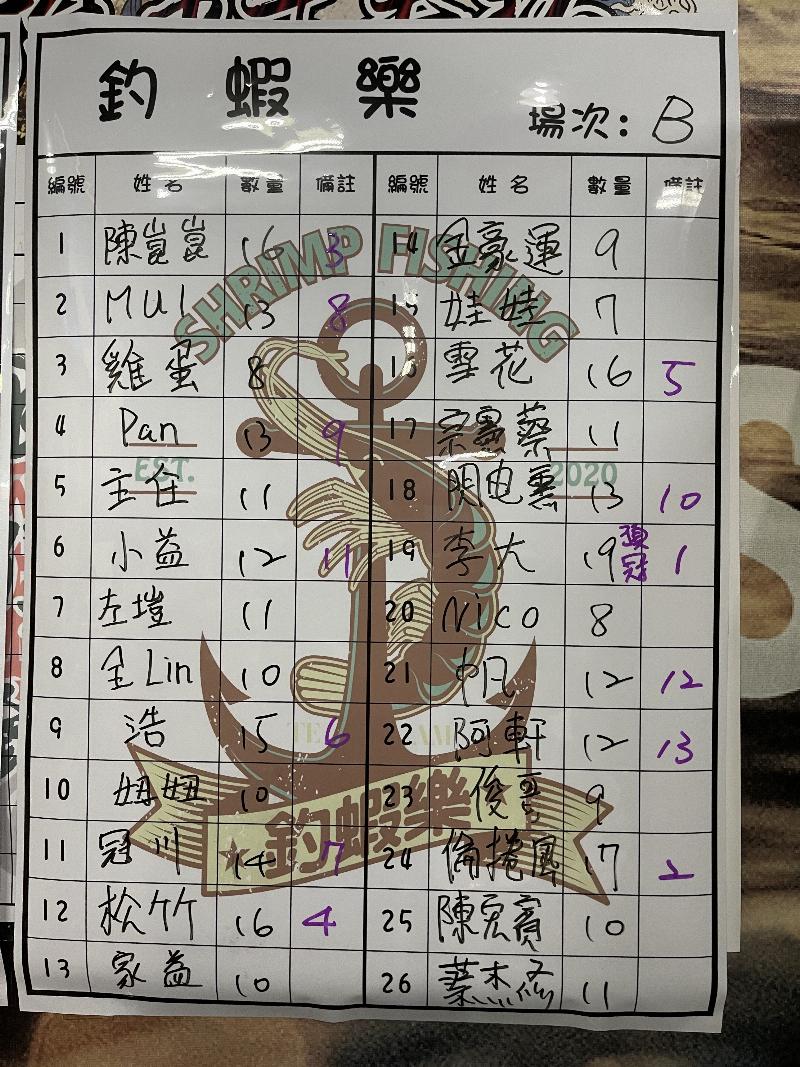 釣蝦樂
場次: B
編號 姓名 數量 備註 編號 姓名 數量 備註
1 陳崑崑 16 3 14 金豪運 9
2 MUI 13 8 15 娃娃 7
3 雞蛋 8 16 雪花 16 5
4 Pan 13 9 17 蔡 11
5 主任 11 18 閃电 13 10
6 小益 12 11 19 李大 19 頭冠 1
7 左塏 11 20 NICO 8
8 全Lin 10 21 帆 12 12
9 浩 15 6 22 阿軒 12 13
10 妞妞 10 23 俊 9
11 冠川 14 7 24 捲風 17 2
12 松竹 16 4 25 陳宏賓 10
13 家益 10 26 11
SHRIMP FISHING
EST. 2020
釣蝦樂